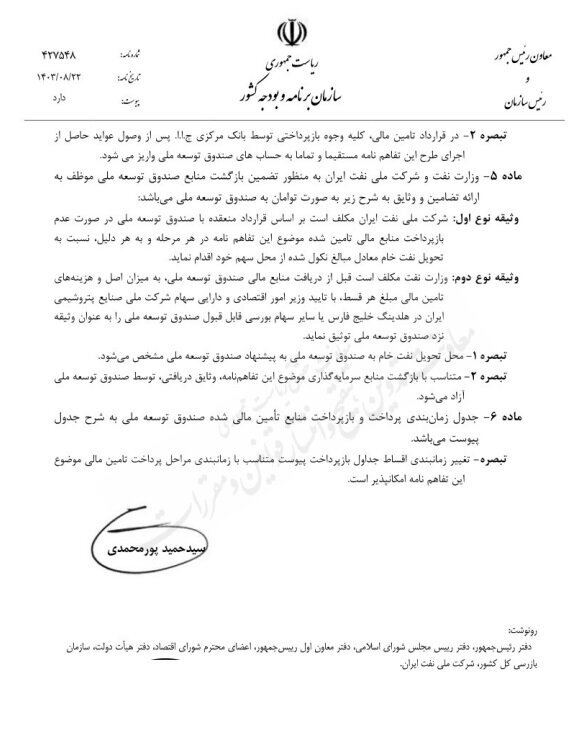 ریاست جمهوری
سازمان برنامه و بودجه کشور
معاون رئیس جمهور
و
رئیس سازمان
شماره نامه: ۴۲۷۵۴۸
تاریخ نامه: ۱۴۰۳/۰۸/۲۲
پیوست: دارد
تبصره ۲- در قرارداد تامین مالی، کلیه وجوه بازپرداختی توسط بانک مرکزی ج.ا.ا. پس از وصول عواید حاصل از
اجرای طرح این تفاهم نامه مستقیما و تماما به حساب های صندوق توسعه ملی واریز می شود.
ماده ۵- وزارت نفت و شرکت ملی نفت ایران به منظور تضمین بازگشت منابع صندوق توسعه ملی موظف به
ارائه تضامین و وثایق به شرح زیر به صورت توامان به صندوق توسعه ملی می‌باشد:
وثیقه نوع اول: شرکت ملی نفت ایران مکلف است بر اساس قرارداد منعقده با صندوق توسعه ملی در صورت عدم
بازپرداخت منابع مالی تامین شده موضوع این تفاهم نامه در هر مرحله و به هر دلیل، نسبت به
تحویل نفت خام معادل مبالغ نکول شده از محل سهم خود اقدام نماید.
وثیقه نوع دوم: وزارت نفت مکلف است قبل از دریافت منابع مالی صندوق توسعه ملی، به میزان اصل و هزینه‌های
تامین مالی مبلغ هر قسط، با تایید وزیر امور اقتصادی و دارایی سهام شرکت ملی صنایع پتروشیمی
ایران در هلدینگ خلیج فارس یا سایر سهام بورسی قابل قبول صندوق توسعه ملی را به عنوان وثیقه
نزد صندوق توسعه ملی توثیق نماید.
تبصره ۱- محل تحویل نفت خام به صندوق توسعه ملی به پیشنهاد صندوق توسعه ملی مشخص می‌شود.
تبصره ۲- متناسب با بازگشت منابع سرمایه‌گذاری موضوع این تفاهم‌نامه، وثایق دریافتی، توسط صندوق توسعه ملی
آزاد می‌شود.
ماده ۶- جدول زمان‌بندی پرداخت و بازپرداخت منابع تأمین مالی شده صندوق توسعه ملی به شرح جدول
پیوست می‌باشد.
تبصره- تغییر زمانبندی اقساط جداول بازپرداخت پیوست متناسب با زمانبندی مراحل پرداخت تامین مالی موضوع
این تفاهم نامه امکانپذیر است.
سیدحمید پورمحمدی
رونوشت:
دفتر رئیس‌جمهور، دفتر رییس مجلس شورای اسلامی، دفتر معاون اول رییس‌جمهور، اعضای محترم شورای اقتصاد، دفتر هیأت دولت، سازمان
بازرسی کل کشور، شرکت ملی نفت ایران.